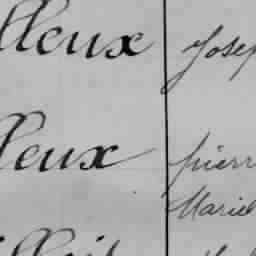 lleux Josep
leux pierr
Mariel